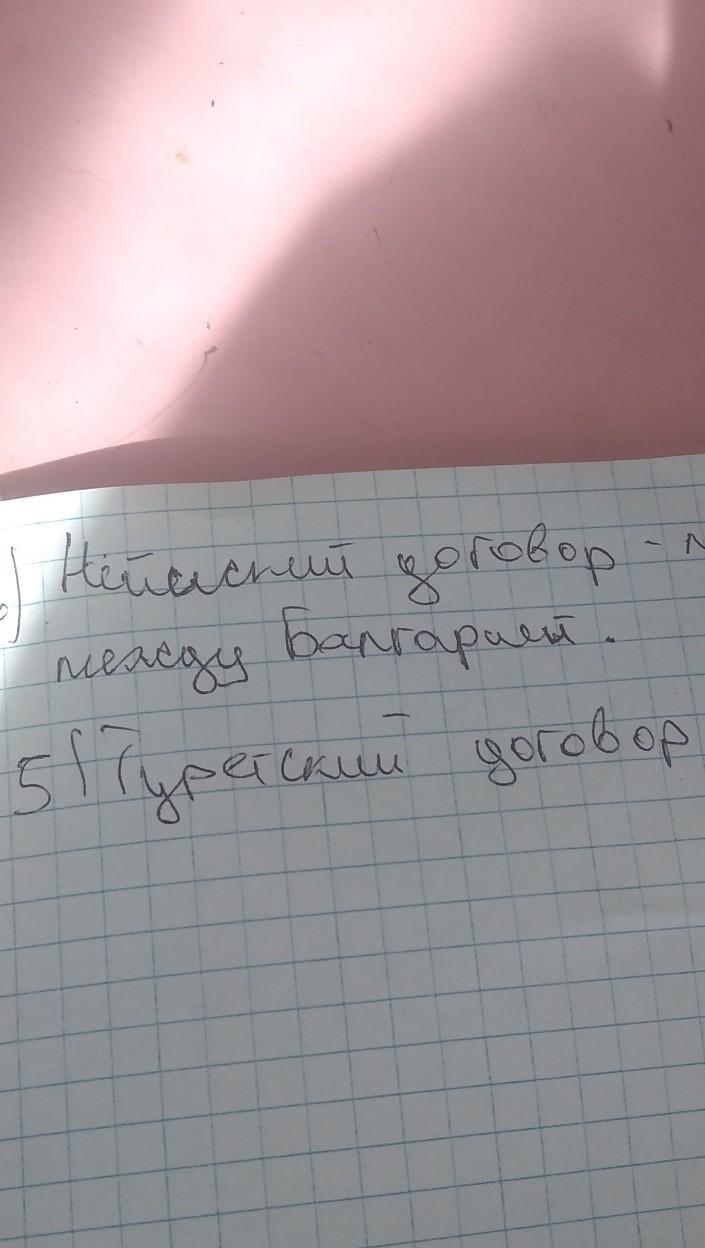 ) Нейиский договор -
между Болгарией.
5) Турецкий договор